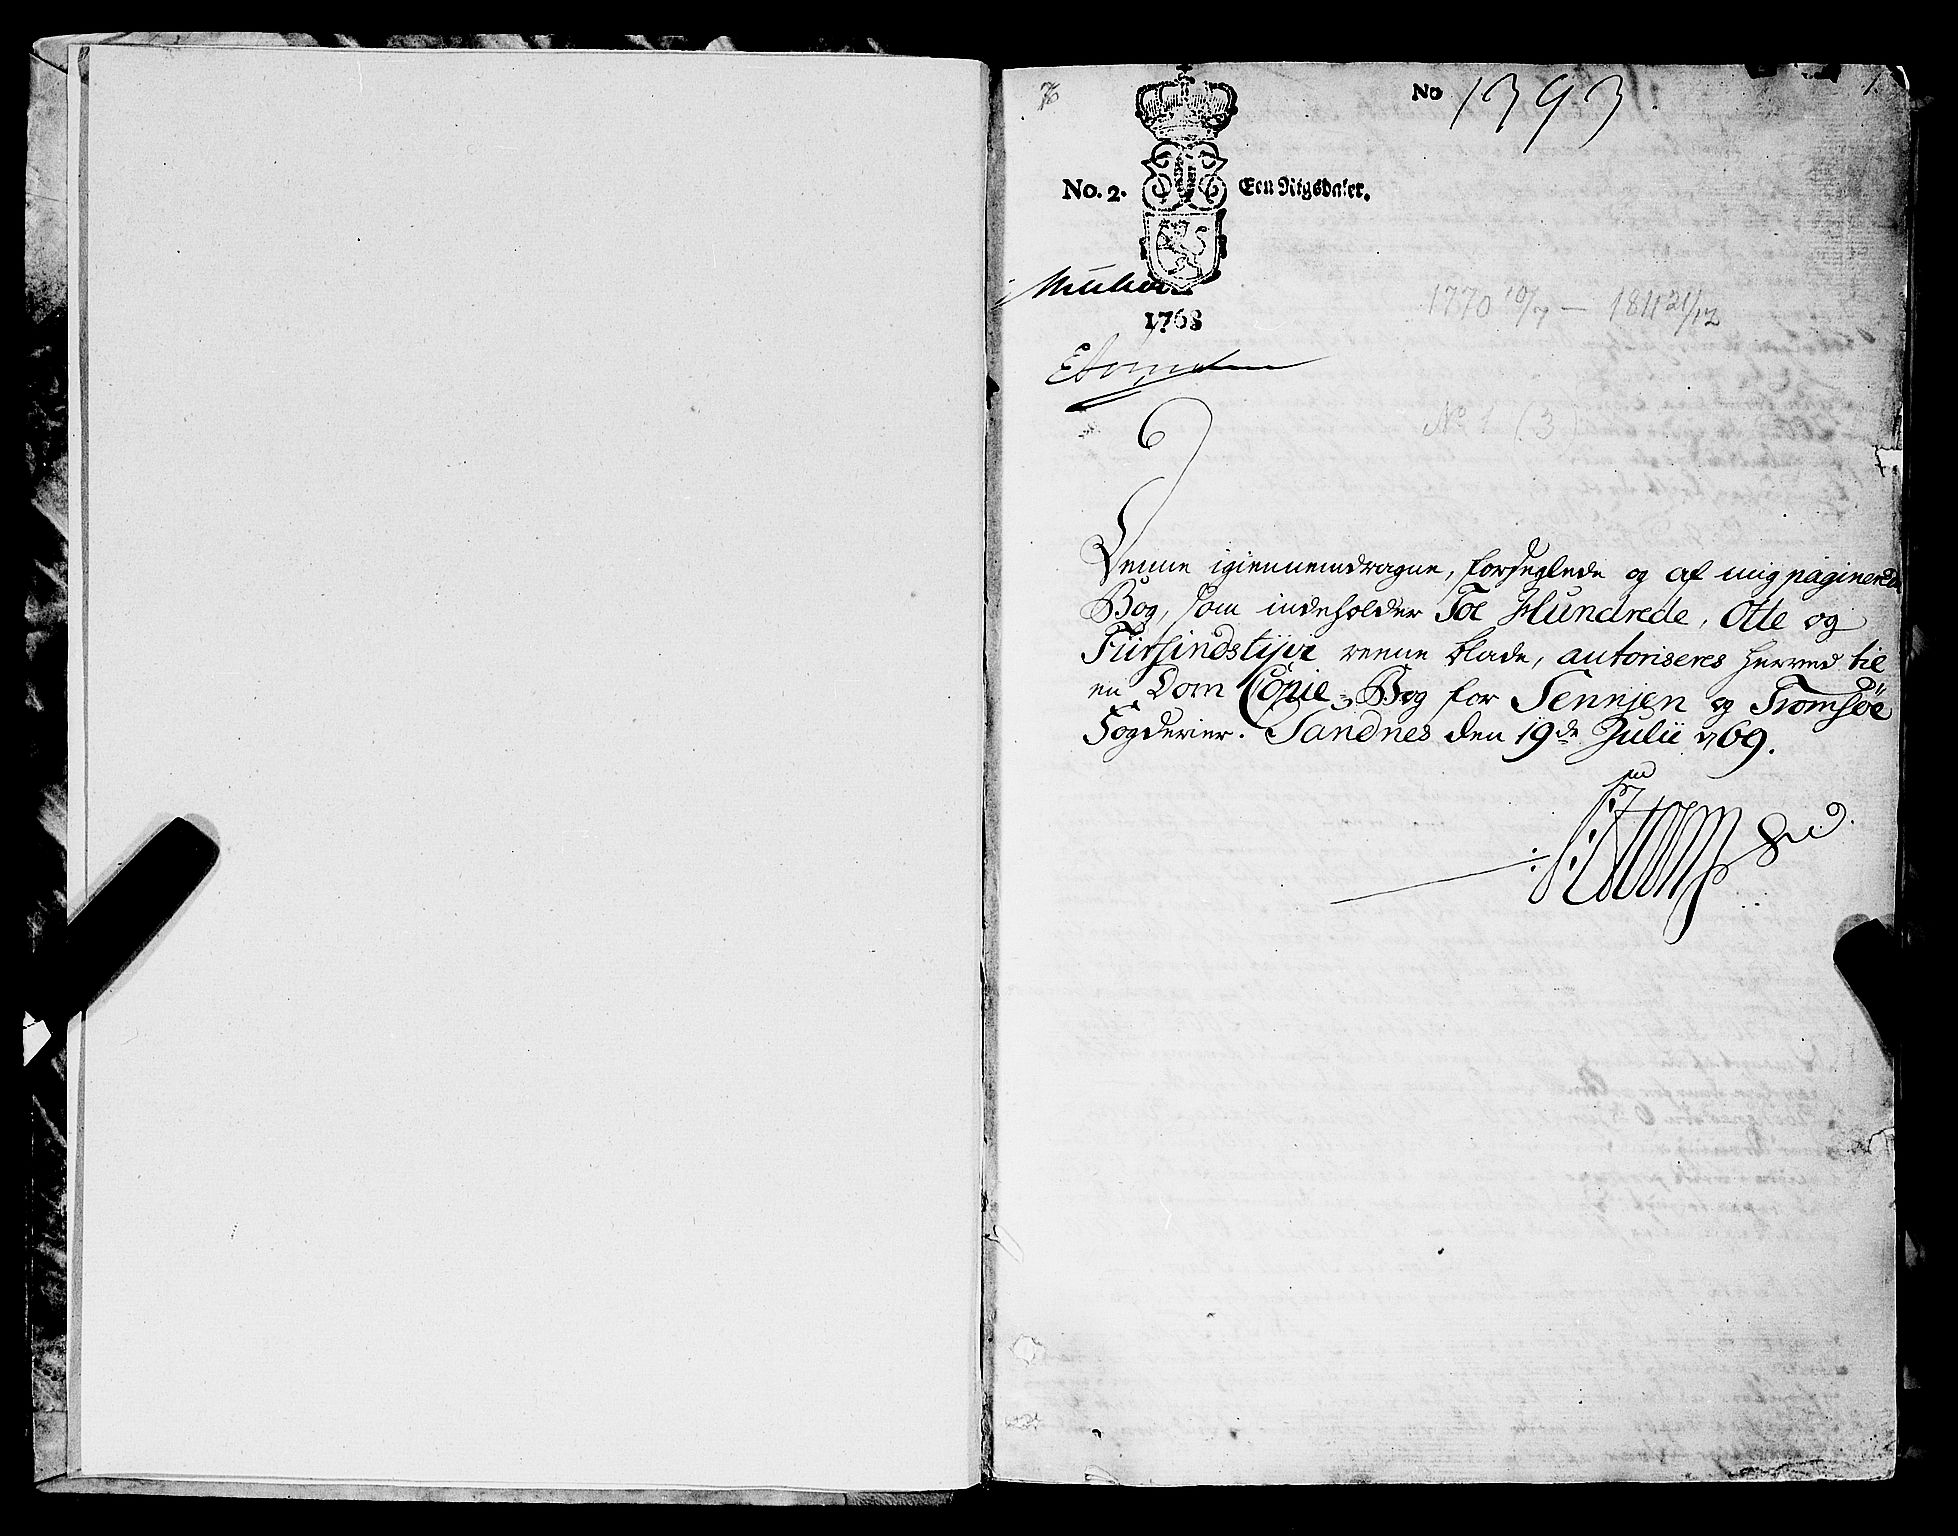 No 1393.
1.
No. 2. Een Rigsdaler.
1768
1770 10/7 — 1811 21/12
No 1 (3)
Denne igiennemdragne, forseglede og af mig paginerede
Bog, som indeholder Toe Hundrede, Otte og
Fiirsindstijve reene blade, autoriseres herved til
en Dom Copie-Bog for Sennjen og Tromsöe
Fogderier. Sandnes den 19de Julii 1769.